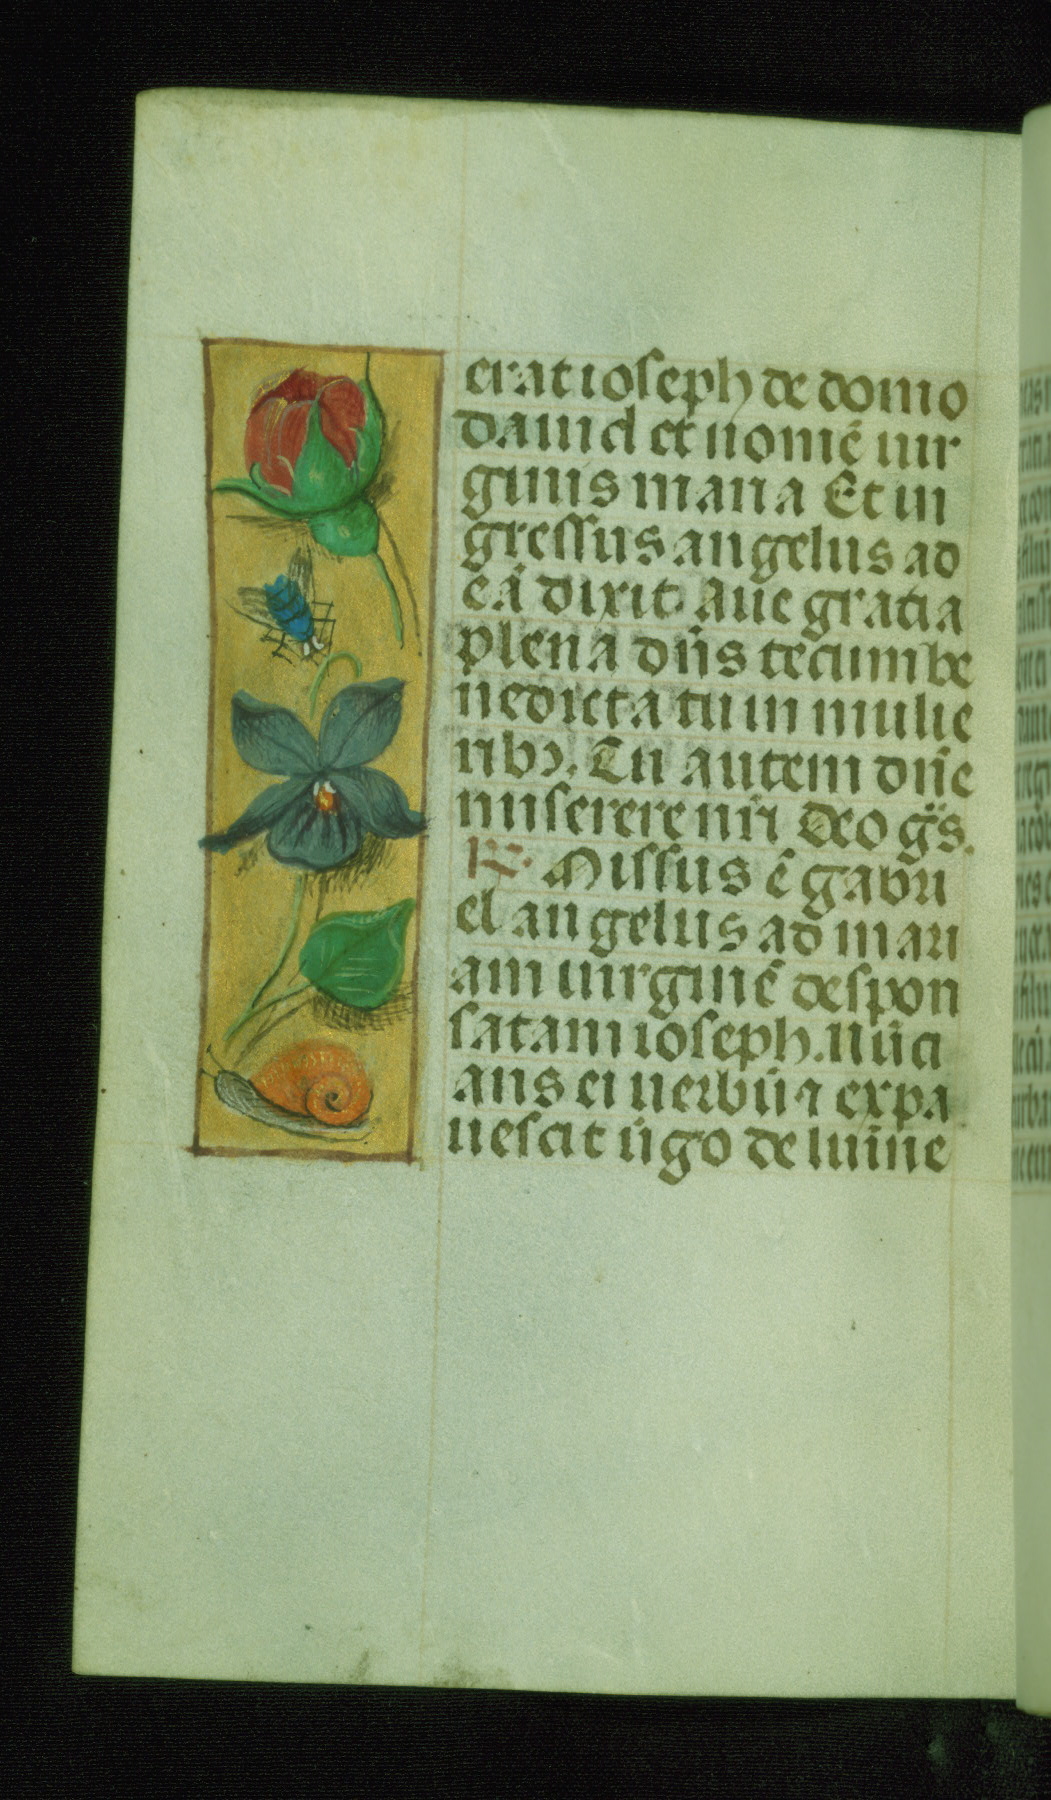 erat ioseph de domo
dauid et nomē uir
ginis maria Et in
gressus angelus ad
eā dixit. Aue gratia
plena dn̄s tecum be
nedicta tu in mulie
ribꝫ. Tu autem dn̄e
miserere nr̄i Deo gr̄s.
R. Missus ē gabri
el angelus ad mari
am uirginē despon
satam ioseph. Nūci
ans ei uerbū ⁊ expa
uescit ūgo de lumine